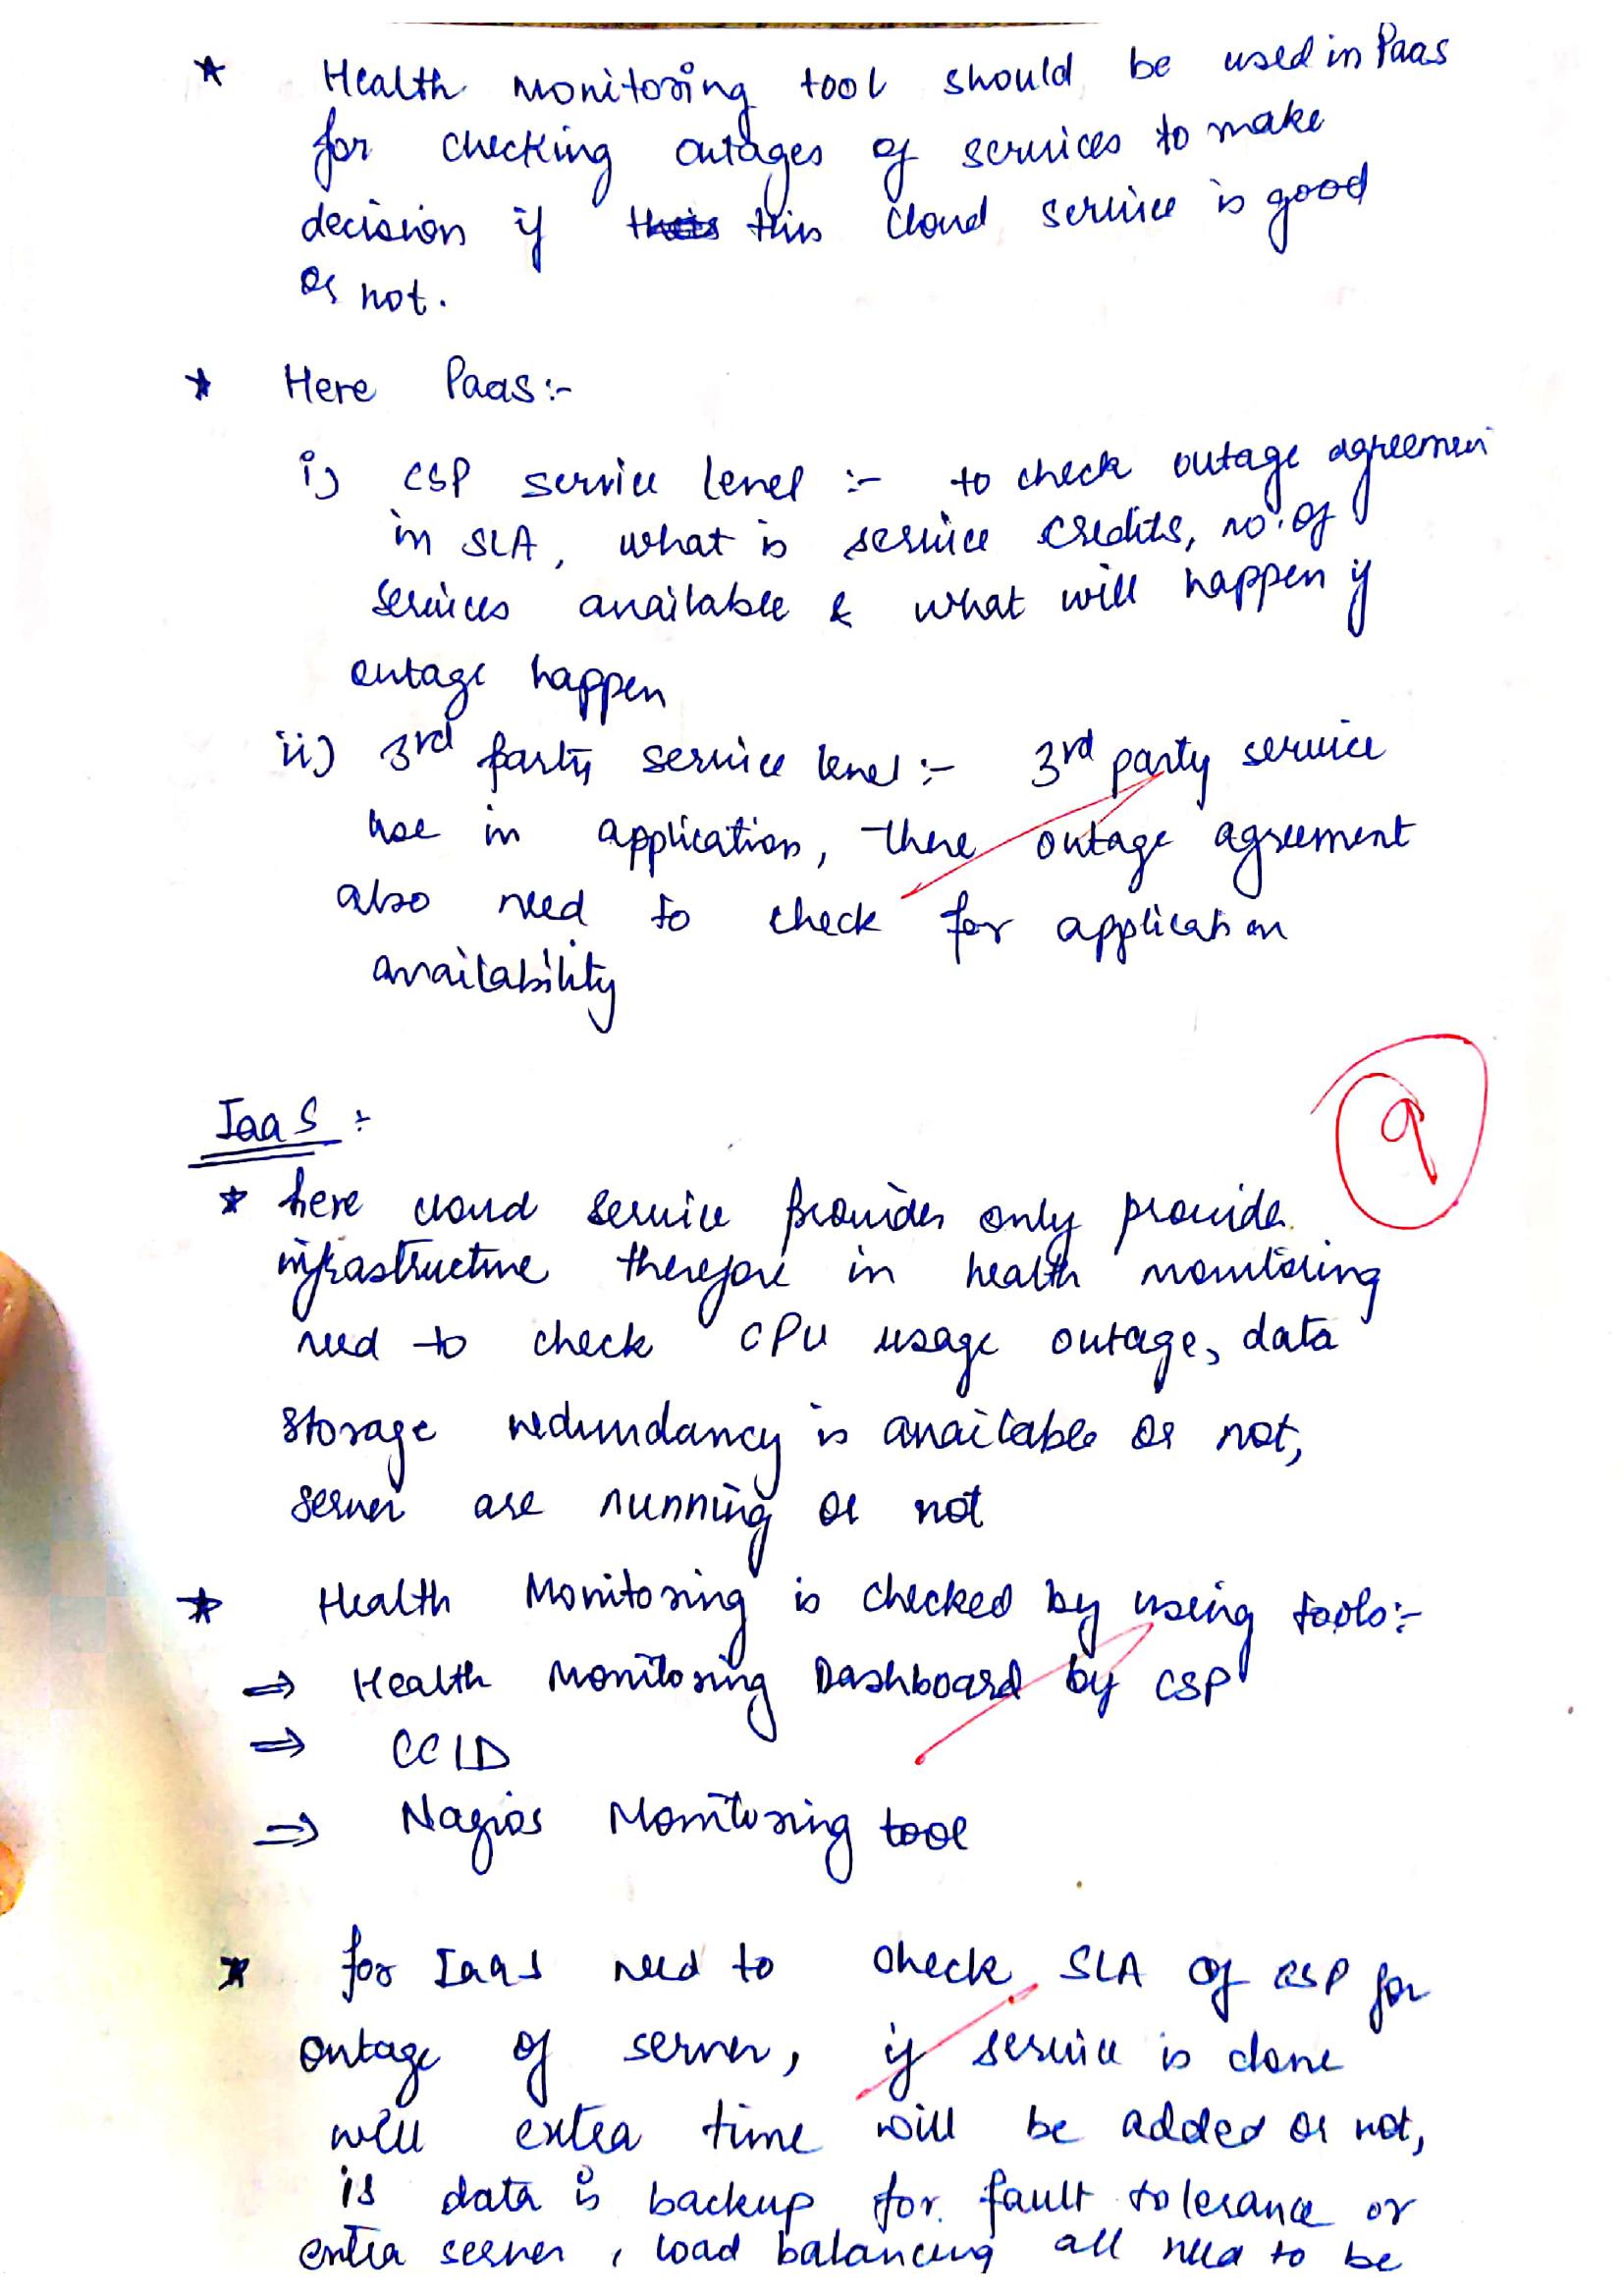 * Health Monitoring tool should be used in Paas
for checking outages of services to make
decision if this cloud service is good
or not.
* Here Paas:-
i) CSP service level :- to check outage agreemen
in SLA, what is service credits, no. of
services available & what will happen if
outage happen
ii) 3rd party service level :- 3rd party service
use in application, there outage agreement
also need to check for application
availability
IaaS :-
9
* here cloud service provider only provide
infrastructure therefore in health monitoring
need to check CPU usage outage, data
storage redundancy is available or not,
server are running or not
* Health Monitoring is checked by using tools:-
⇒ Health Monitoring Dashboard by CSP
⇒ CCID
⇒ Nagios Monitoring tool
* for Iaas need to check SLA of CSP for
outage of server, if service is done
well extra time will be added or not,
is data is backup for fault tolerance or
extra server, load balancing all need to be